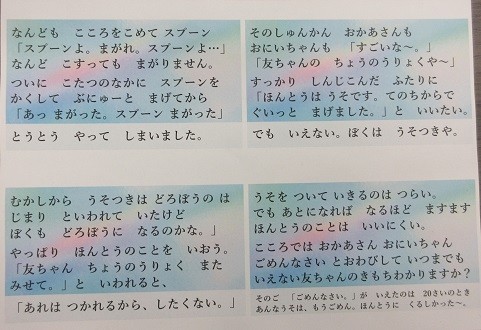 なんども　こころをこめて　スプーン
「スプーンよ。まがれ。スプーンよ…」
なんど　こすっても　まがりません。
ついに　こたつのなかに　スプーンを
かくして　ぶにゅーと　まげてから
「あっ　まがった。スプーン　まがった」
とうとう　やって　しまいました。
そのしゅんかん　おかあさんも
おにいちゃんも　「すごいな～。」
「友ちゃんの　ちょうのうりょくや～」
すっかり　しんじこんだ　ふたりに
「ほんとうは　うそです。てのちからで
ぐいっと　まげました。」と　いいたい。
でも　いえない。ぼくは　うそつきや。
むかしから　うそつきは　どろぼうの　は
じまり　といわれて　いたけど
ぼくも　どろぼうに　なるのかな。」
やっぱり　ほんとうのことを　いおう。
「友ちゃん　ちょうのうりょく　また
みせて。」と　いわれると、
「あれは　つかれるから、したくない。」
うそを　ついて　いきるのは　つらい。
でも　あとになれば　なるほど　ますます
ほんとうのことは　いいにくい。
こころでは　おかあさん　おにいちゃん
ごめんなさい　とおわびして　いつまでも
いえない友ちゃんのきもちわかりますか？
そのご　「ごめんなさい。」が　いえたのは　20さいのとき
あんなうそは、もうごめん。ほんとうに　くるしかった～。